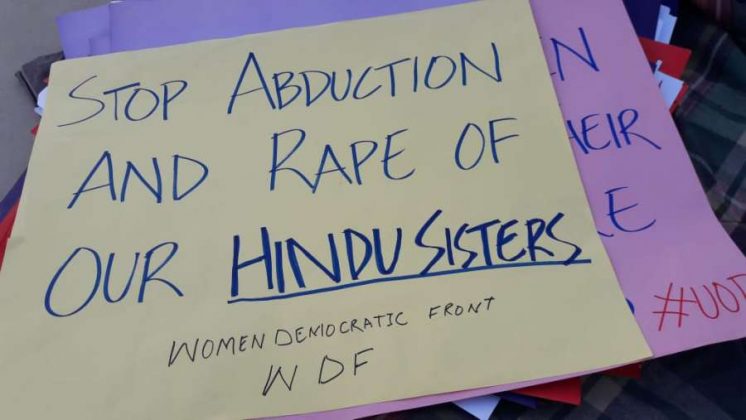 STOP ABDUCTION
AND RAPE OF
OUR HINDU SISTERS
WOMEN DEMOCRATIC FRONT
WDF